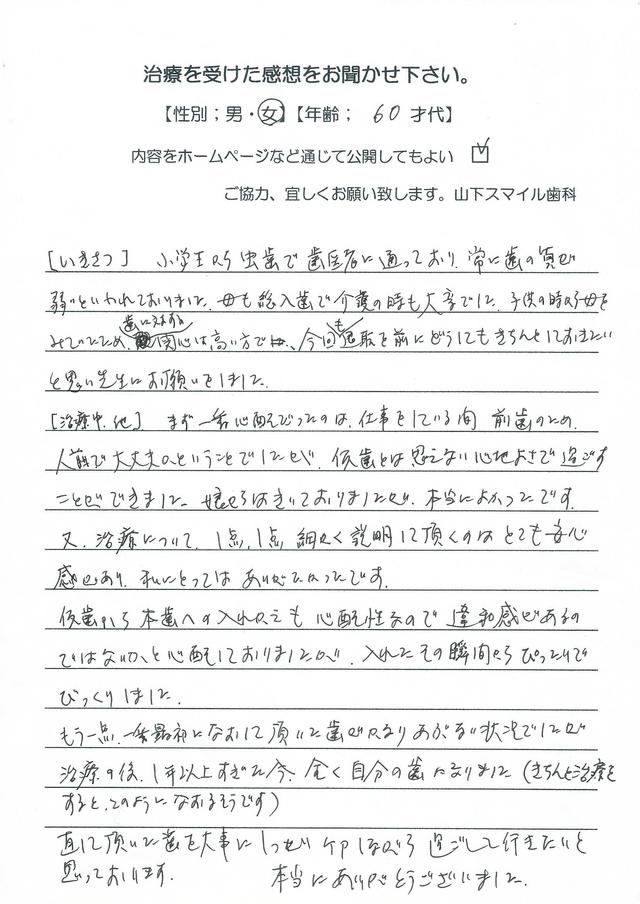 治療を受けた感想をお聞かせ下さい。
【性別；男・女】【年齢； 60 才代】
内容をホームページなど通じて公開してもよい ☑
ご協力、宜しくお願い致します。山下スマイル歯科
[いきさつ] 小学生から虫歯で歯医者に通っており、常に歯の質が
弱いといわれておりました。母も総入歯で介護の時も大変でした。子供の時から母を
みていたため、歯に対する関心は高い方で、今回も退職を前にどうしてもきちんとしておきたい
と思い先生にお願いをしました。
[治療中、他] まず一番心配だったのは、仕事をしている間 前歯のため、
人前で大丈夫かということでしたが、仮歯とは思えない心地よさで過ごす
ことができました。嫌がらはきいておりましたが、本当によかったです。
又、治療について、1点、1点細かく説明して頂くのはとても安心
感があり、私にとってはありがたかったです。
仮歯から本歯への入れかえも心配性なので違和感があるの
ではないか、と心配しておりましたが、入れたその瞬間からぴったりで
びっくりしました。
もう一点、一番最初になおして頂いた歯がかなりあぶない状況でしたが
治療の後、1年以上すぎた今、全く自分の歯になりました（きちんと治療を
すると、このようになおるそうです）
直して頂いた歯を大事にしっかりケアしながら過ごして行きたいと
思っております。 本当にありがとうございました。